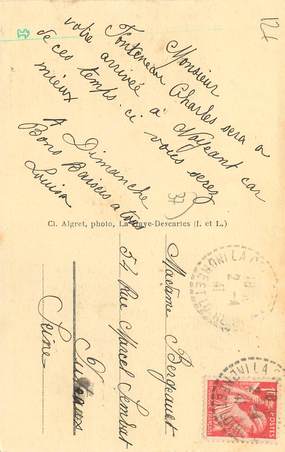 Monsieur
Fonteneau Charles sera a
votre arrivée à Nogeant car
de ces temps-ci vous serez
mieux
A Dimanche
Bons Baisers a tous
Louisa
Cl. Algret, photo, La Haye-Descartes (I. et L.)
Madame Bergeault
54 Rue Marcel Sembat
Puteaux
Seine
37
POSTES